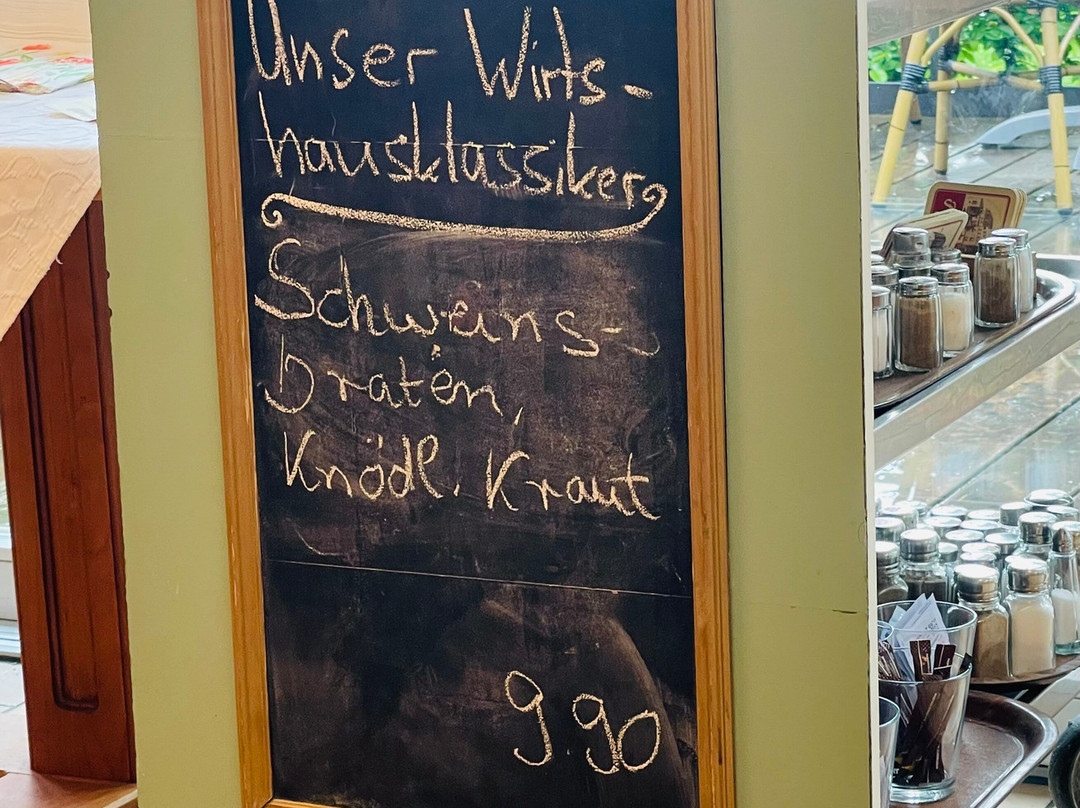 Unser Wirts-
hausklassiker
Schweins-
braten,
Knödl, Kraut
9.90